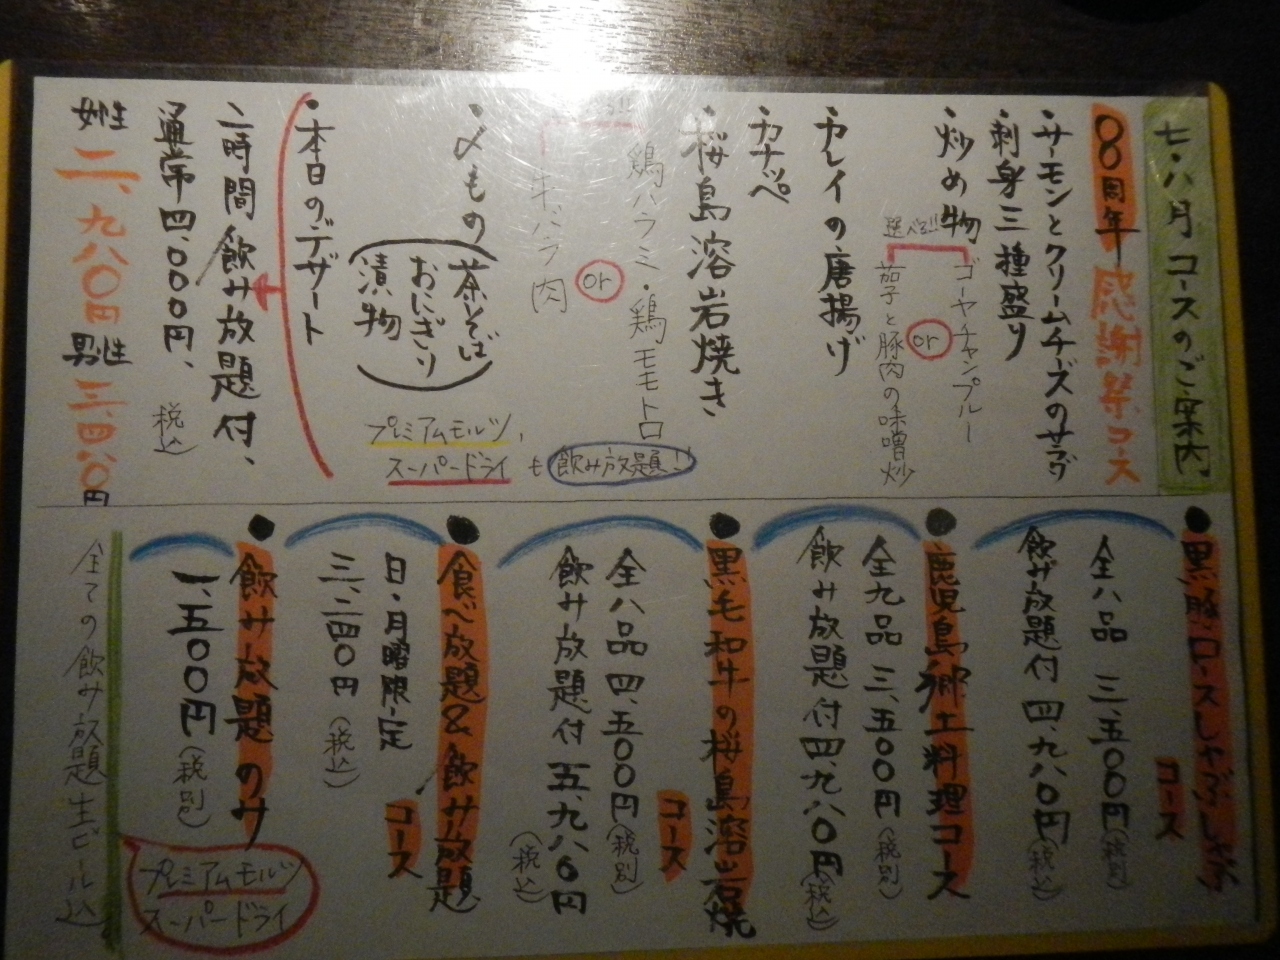 七・八月コースのご案内
8周年感謝祭コース
・サーモンとクリームチーズのサラダ
・刺身三種盛り
・炒め物
選べる!!
ゴーヤチャンプルー
or
茄子と豚肉の味噌炒
・カレイの唐揚げ
・カナッペ
・桜島溶岩焼き
鶏ハラミ・鶏モモトロ
or
牛バラ肉
・〆もの
茶そば
おにぎり
漬物
・本日のデザート
プレミアムモルツ、
スーパードライも飲み放題!!
二時間飲み放題付、
通常四、〇〇〇円、
税込
女性二、九八〇円 男性三、四八〇円
●黒豚ロースしゃぶしゃぶ
コース
全八品 三、五〇〇円(税別)
飲み放題付 四、九八〇円(税込)
●鹿児島郷土料理コース
全九品 三、五〇〇円(税別)
飲み放題付 四、九八〇円(税込)
●黒毛和牛の桜島溶岩焼
コース
全八品 四、五〇〇円(税別)
飲み放題付 五、九八〇円
(税込)
●食べ放題&飲み放題
コース
日・月曜限定
三、二四〇円(税込)
●飲み放題のみ
一、五〇〇円(税別)
全ての飲み放題生ビール込
プレミアムモルツ
スーパードライ